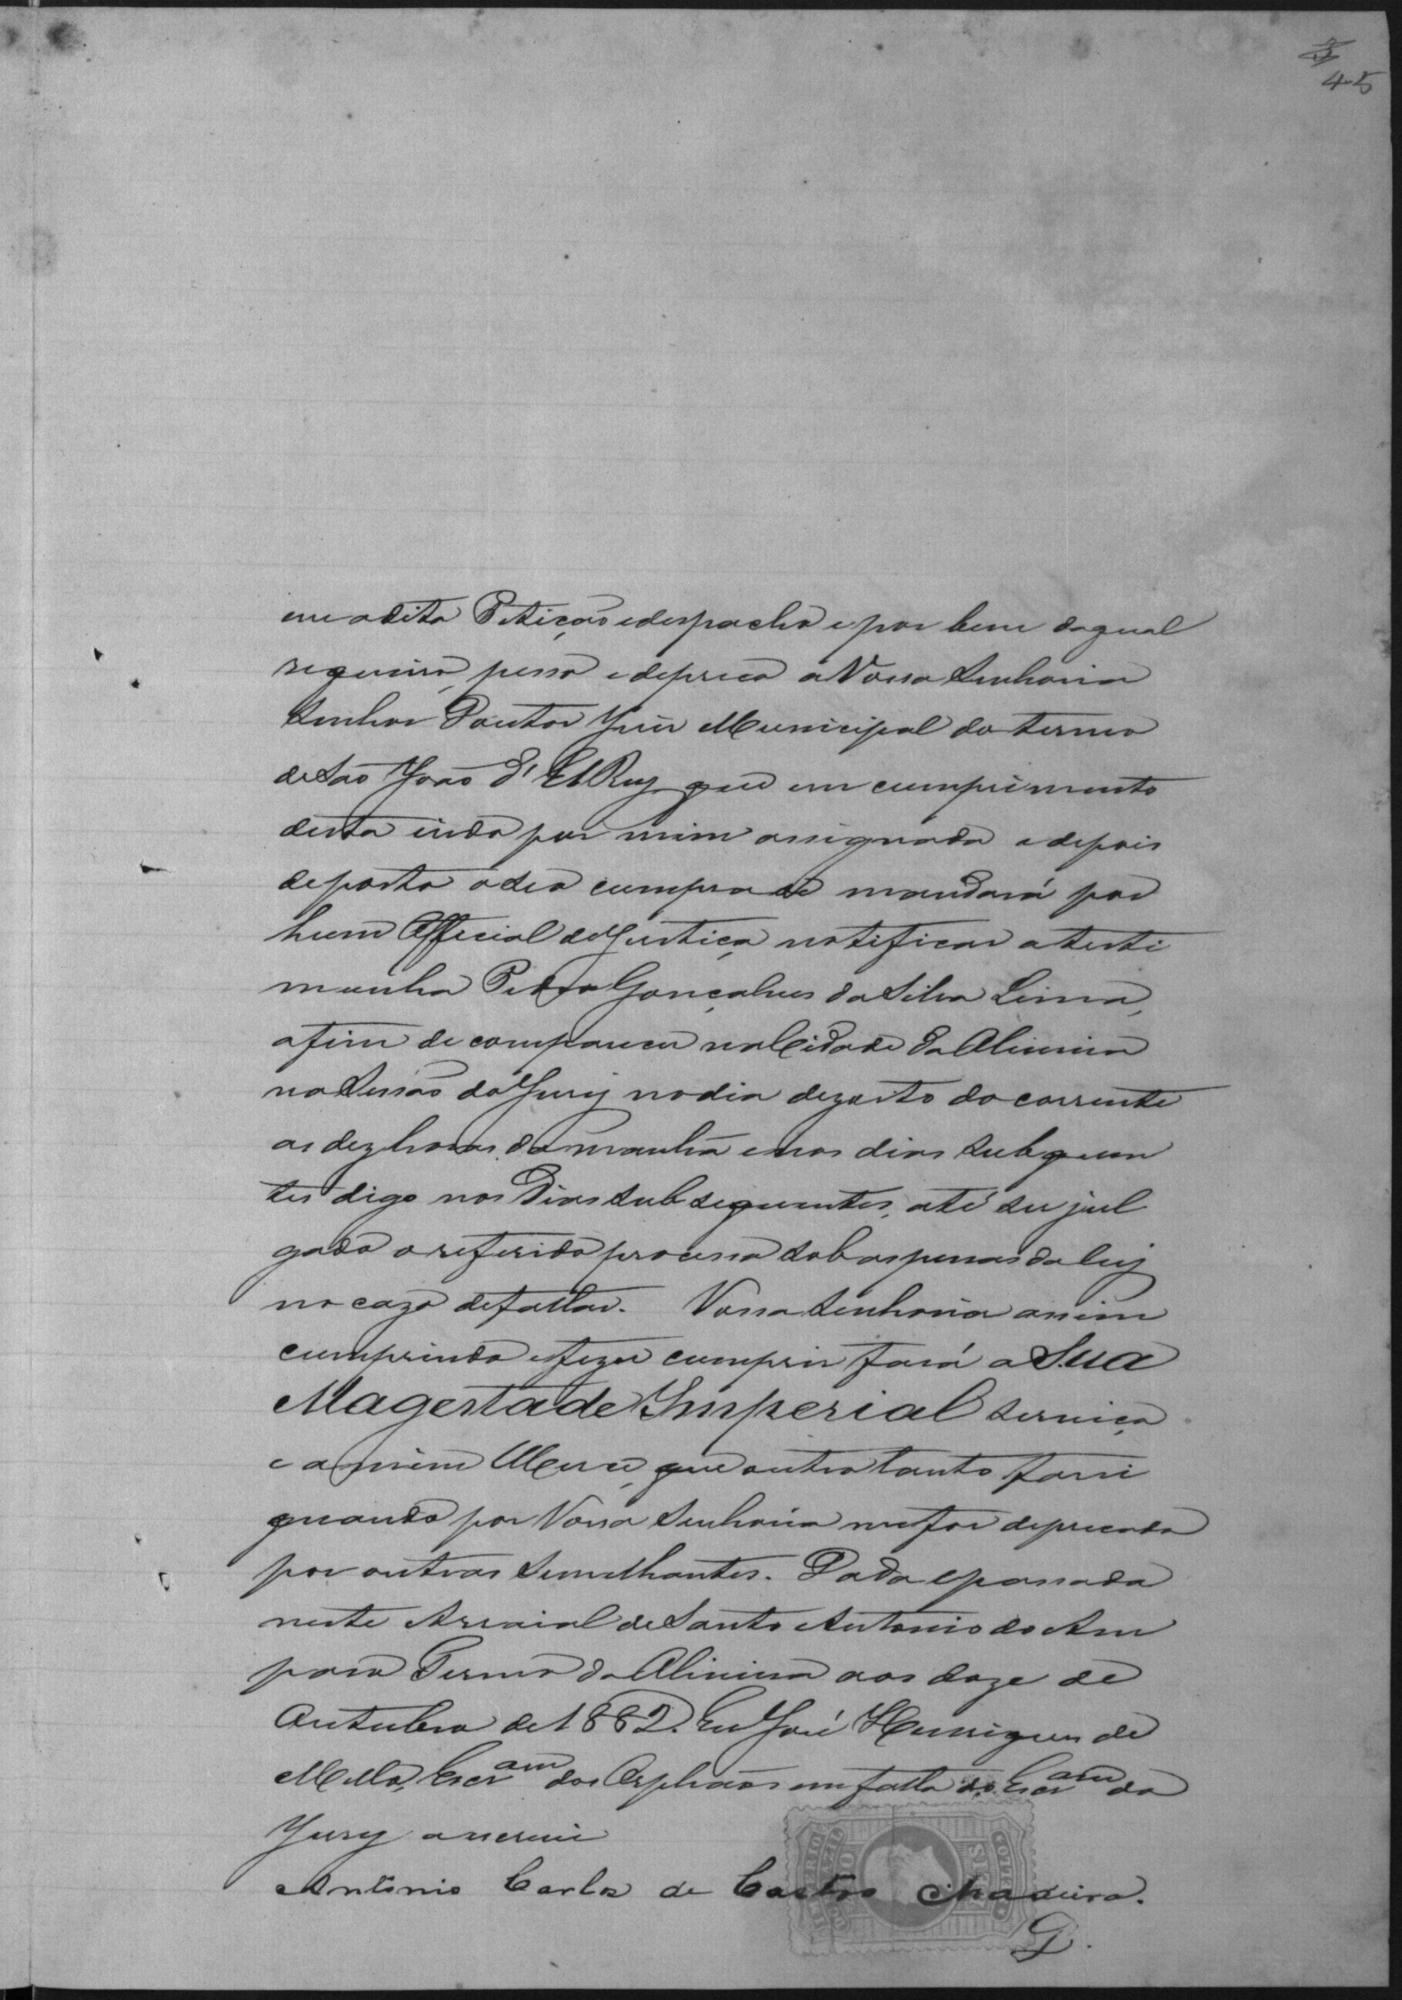 45
em a dita Petição e despacho e por bem daqual
requeiro, pesso e depreco a Vossa Senhoria
Senhor Doutor Juiz Municipal do termo
de São João d'El Rey que em cumprimento
desta indo por mim assignada e depois
de posto o seo cumpra se mandará por
hum Official de Justiça notificar a testi
munha Pedro Gonçalves da Silva Lima,
afim de comparecer na Cidade da Oliveira
na Sessão do Jury no dia dezoito do corrente
as dez horas da manhã e nos dias subquen
tes digo nos Dias subsequentes, até ser jul
gado o referido processo sob as penas da ley
no cazo de faltar. Vossa Senhoria assim
cumprindo e fazer cumprir fará a Sua
Magestade Imperial serviço
e a mim Merce, que outro tanto farei
quando por Vossa Senhoria me for deprecado
por outras Semelhantes. Dada e passada
neste Arraial de Santo Antonio do Am
paro Termo da Oliveira aos doze de
Outubro de 1882. Eu José Henriques de
Mello, Escram dos Orphãos em falta do Escram do
Jury a escrevi
Antonio Carlos de Castro Madeira.
G.